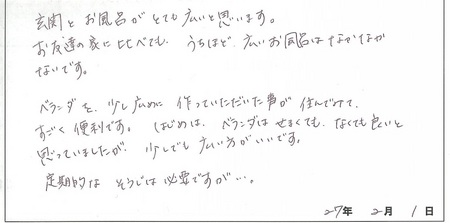 玄関と お風呂が とても 広いと思います。
お友達の家に比べても、うちほど、広いお風呂はなかなか
ないです。
ベランダを、少し広めに 作っていただいた事が 住んでみて、
すごく 便利です。 はじめは、ベランダは せまくても、なくても良いと
思っていましたが、少しでも 広い方がいいです。
定期的な そうじは 必要ですが…。
27年 2月 1日